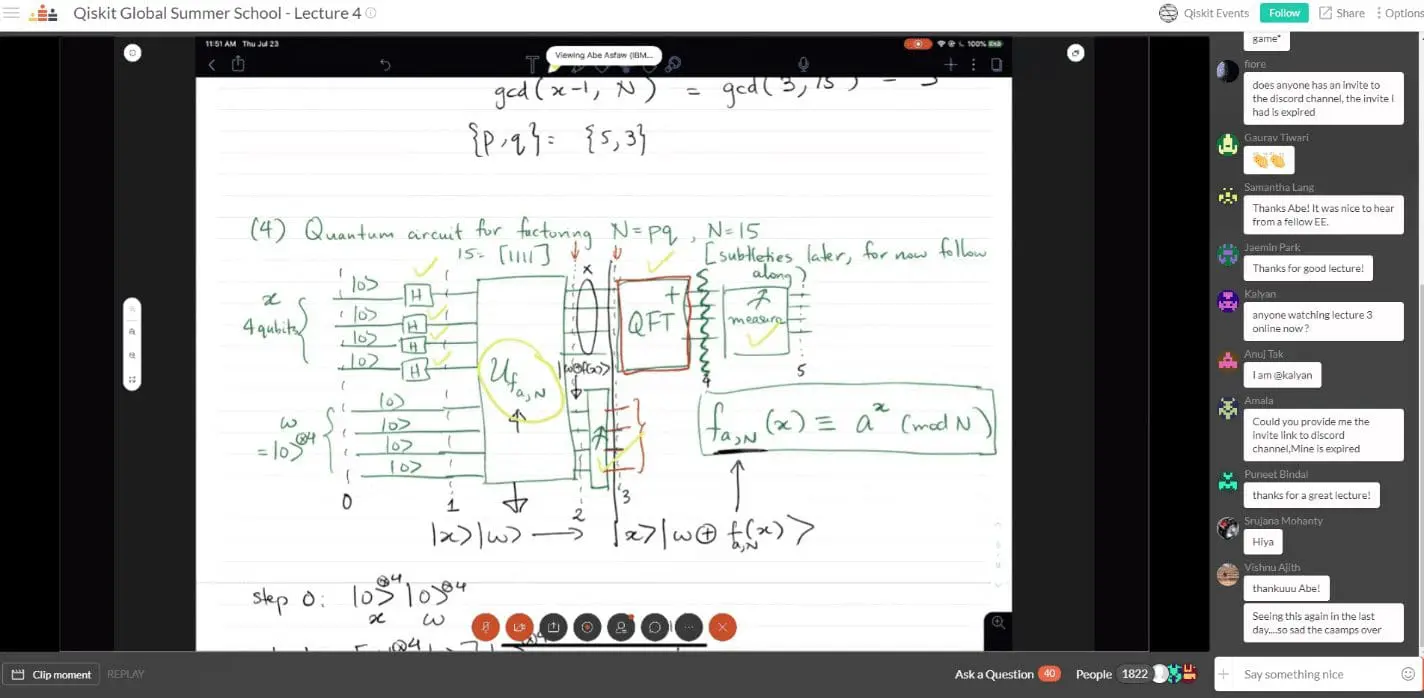 Qiskit Global Summer School - Lecture 4
Qiskit Events
Follow
Share
Options
11:51 AM Thu Jul 23
100%
Viewing Abe Asfaw (IBM...
gcd(x-1, N) = gcd(3,15) = 3
{p,q} = {5,3}
(4) Quantum circuit for factoring N=pq, N=15
15=[1111]
[subtleties later, for now follow
along]
x
4 qubits
|0>
|0>
|0>
|0>
H
H
H
H
x
QFT†
measure
U_f_a,N
|w⊕f(x)>
w
=|0>⊗4
|0>
|0>
|0>
|0>
0
1
2
3
4
5
f_a,N (x) ≡ a^x (mod N)
|x>|w> → |x>|w ⊕ f_a,N(x)>
step 0: |0>⊗4 |0>⊗4
x w
game"
fiore
does anyone has an invite to
the discord channel, the invite I
had is expired
Gaurav Tiwari
👏👏
Samantha Lang
Thanks Abe! It was nice to hear
from a fellow EE.
Jaemin Park
Thanks for good lecture!
Kalyan
anyone watching lecture 3
online now?
Anuj Tak
I am @kalyan
Amala
Could you provide me the
invite link to discord
channel,Mine is expired
Puneet Bindal
thanks for a great lecture!
Srujana Mohanty
Hiya
Vishnu Ajith
thankuuu Abe!
Seeing this again in the last
day....so sad the caamps over
Clip moment
REPLAY
Ask a Question 40
People 1822
Say something nice